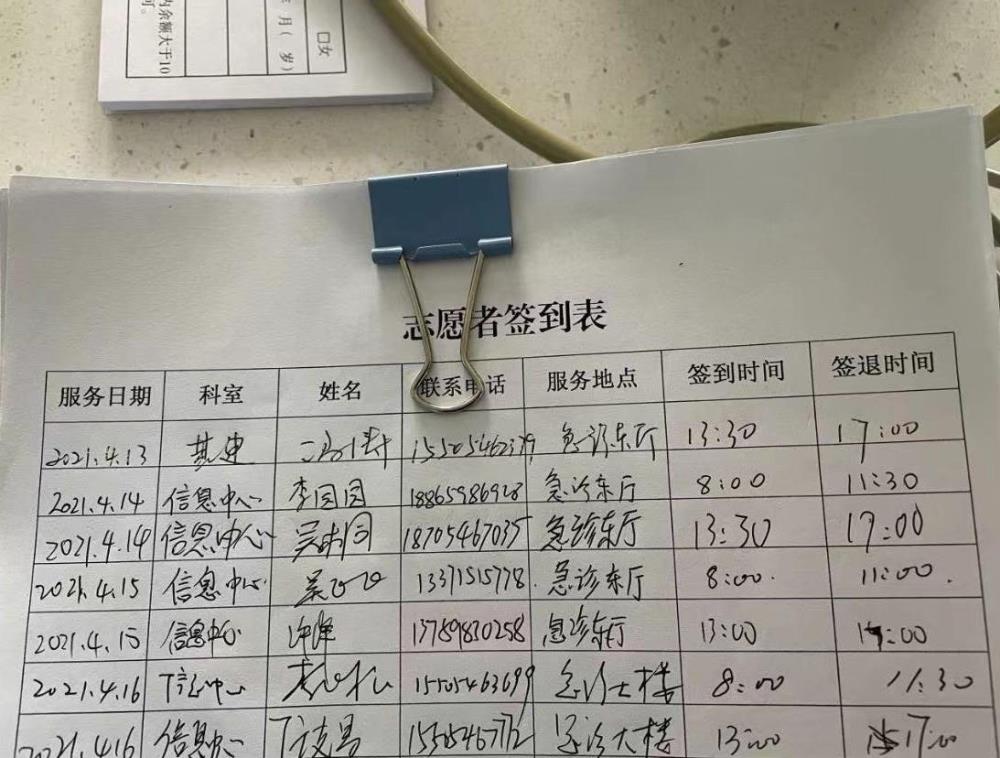 □女
月（ 岁）
内余额大于10
可。
志愿者签到表
服务日期 科室 姓名 联系电话 服务地点 签到时间 签退时间
2021.4.13 基建 急诊东厅 13:30 17:00
2021.4.14 信息中心 李园园 18865986928 急诊东厅 8:00 11:30
2021.4.14 信息中心 18705467035 急诊东厅 13:30 17:00
2021.4.15 信息中心 13371515778. 急诊东厅 8:00. 11:00.
2021.4.15 信息中心 17789830258 急诊东厅 13:00 :00
2021.4.16 中心 15505463699 急诊大楼 8:00 11:30
2021.4.16 信息中心 15505467772 急诊大楼 13:00 17:00